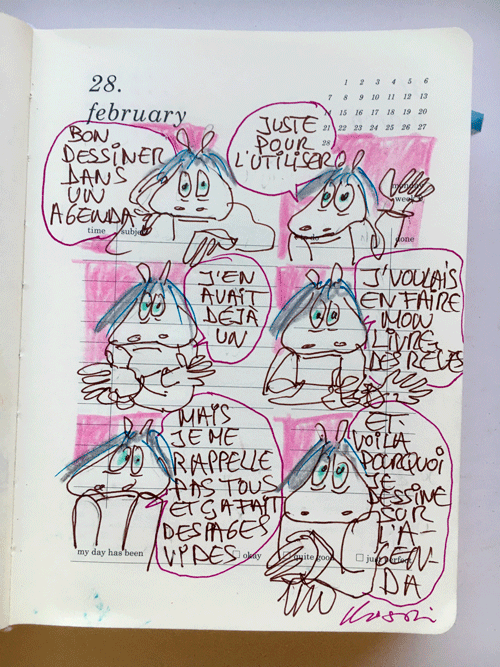 28.
february
1 2 3 4 5 6
7 8 9 10 11 12 13
15 16 17 18 19 20
21 22 23 24 25 26 27
28
BON
DESSINER
DANS
UN
AGENDA
time
JUSTE
POUR
L'UTILISER
done
J'EN
AVAIT
DÉJÀ
UN
J'VOULAIS
EN FAIRE
MON
LIVRE
DES RÊVES
MAIS
JE ME
RAPPELLE
PAS TOUS
ET ÇA FAIT
DES PAGES
VIDES
ET
VOILÀ
POURQUOI
JE
DESSINE
SUR
L'A-
GEN-
DA
my day has been
okay
quite good